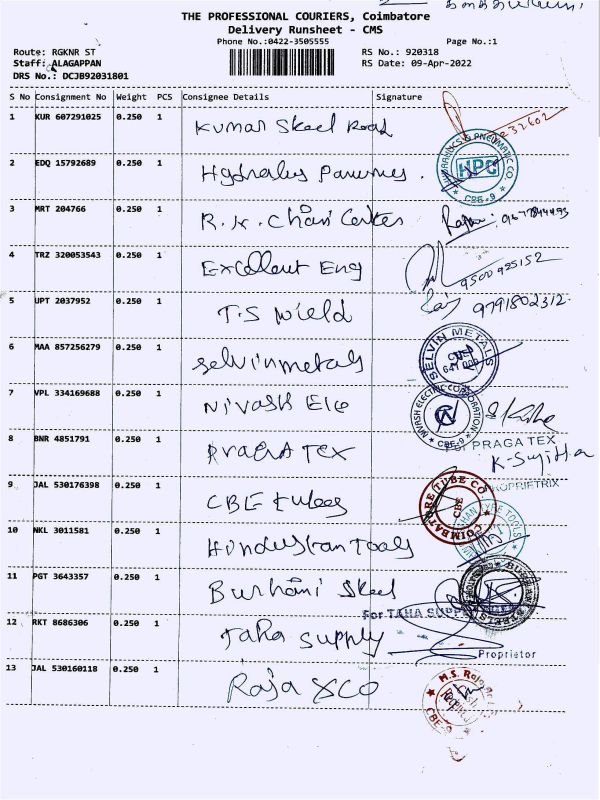 THE PROFESSIONAL COURIERS, Coimbatore
Delivery Runsheet - CMS
Phone No.:0422-3505555 Page No.:1
Route: RGKNR ST RS No.: 920318
Staff: ALAGAPPAN RS Date: 09-Apr-2022
DRS No.: DCJB92031801
S No Consignment No Weight PCS Consignee Details Signature
1 KUR 607291025 0.250 1 Kumar Steel Road
2 EDQ 15792689 0.250 1 Hydraulics HPC CBE-9
3 MRT 204766 0.250 1 R.K. Chain Center
4 TRZ 320053543 0.250 1 Excellent Eng 9500925152
5 UPT 2037952 0.250 1 T.S Wield Raj 9791802312
6 MAA 857256279 0.250 1 Selvinmetals SELVIN METALS
7 VPL 334169688 0.250 1 Nivash Ele NIVASH ELECTRIC CORPORATION CBE-9
8 BNR 4851791 0.250 1 Praga Tex For PRAGA TEX
K. Sujitha
PROPRIETRIX
9 JAL 530176398 0.250 1 CBE tubes COIMBATORE TUBE CO CBE
10 NKL 3011581 0.250 1 Hindustan Tools
11 PGT 3643357 0.250 1 Burhani Steel
For TAHA SUPPLY
12 RKT 8686306 0.250 1 Taha Supply
Proprietor
13 JAL 530160118 0.250 1 Raja &CO M.S. Raja CBE-9